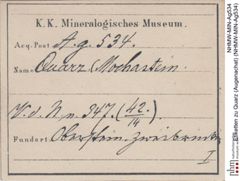 K. K. Mineralogisches Museum.
Acq. Post A. g. 534.
Name Quarz (Mochastein.
V. d. N. n. 347. (42/14)
Fundort Oberstein. Zweibrücken
I
NHMW-MIN-Ag534
Etiketten zu Quarz (Augenachat) (NHMW-MIN-Ag534)
nhm